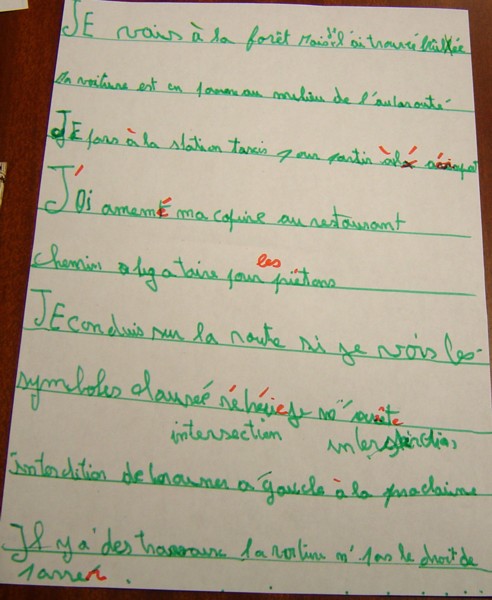 JE vais à la forêt mais je l'ai trouvé brûlée
En voiture est en panne au milieu de l'autoroute.
JE pars à la station taxis pour partir à
J'ai amené ma copine au restaurant
chemin obligatoire pour les piétons
JE conduis sur la route si je vois les
symboles je m'arrête
intersection
interdiction de tourner à gauche à la prochaine
Il y a des travaux la voiture n' pas le droit de
passer.